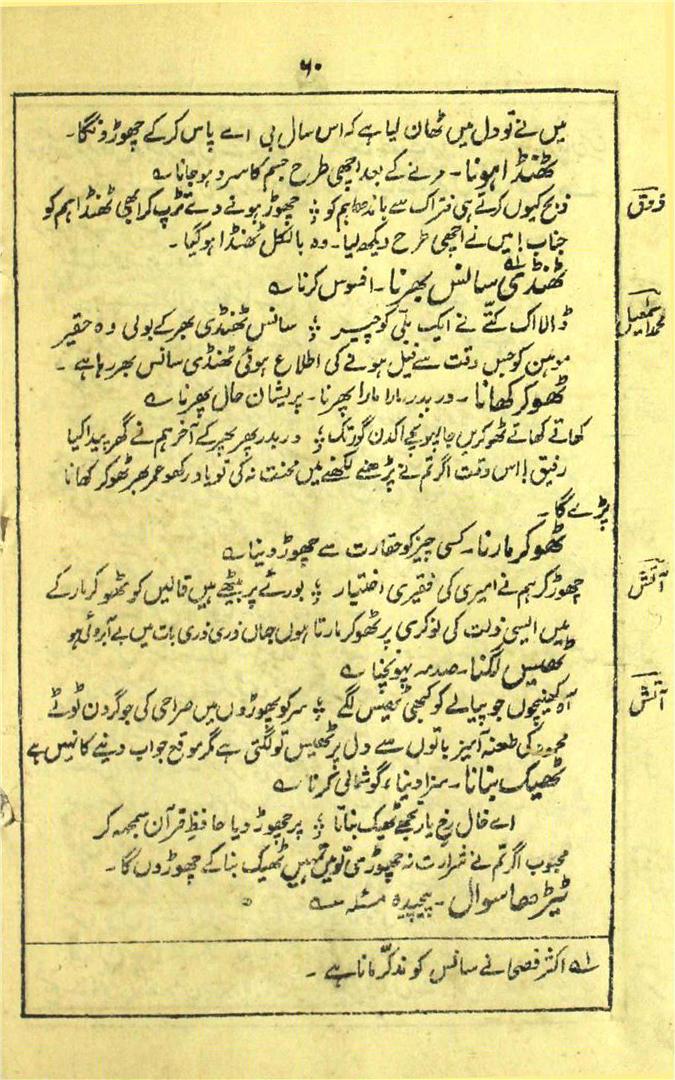 ۶۰
میں نے تو دل میں ٹھان لیا ہے کہ اس سال بی اے پاس کر کے چھوڑونگا۔
ٹھنڈا ہونا۔ مرنے کے بعد اچھی طرح جسم کا سرد ہو جانا ؎
ذوق
ذبح کیوں کرتے ہی فتراک سے باندھا ہم کو ؛ چھوڑ ہونے دے تڑپ کر ابھی ٹھنڈا ہم کو
جناب! میں نے اچھی طرح دیکھ لیا۔ وہ بالکل ٹھنڈا ہو گیا۔
ٹھنڈی سانس بھرنا۔ افسوس کرنا ؎
محمد اسمعیل
ڈالا اک کتّے نے ایک بلّی کو چیر ؛ سانس ٹھنڈی بھر کے بولی وہ حقیر
موہن کو جس وقت سے فیل ہونے کی اطلاع ہوئی ٹھنڈی سانس بھر رہا ہے۔
ٹھوکر کھانا۔ در بدر مارا مارا پھرنا۔ پریشان حال پھرنا ؎
کھاتے کھاتے ٹھوکریں جا پہونچے اکدن گور تک ؛ در بدر پھر پھر کے آخر ہم نے گھر پیدا کیا
رفیق! اس وقت اگر تم نے پڑھنے لکھنے میں محنت نہ کی تو یاد رکھو عمر بھر ٹھوکر کھانا
پڑے گا۔
ٹھوکر مارنا۔ کسی چیز کو حقارت سے چھوڑ دینا ؎
آتش
چھوڑ کر ہم نے امیری کی فقیری اختیار ؛ بورئے پر بیٹھے ہیں قالیں کو ٹھوکر مار کے
میں ایسی ذلت کی نوکری پر ٹھوکر مارتا ہوں جہاں ذری ذری بات میں بے آبروئی ہو
ٹھیس لگنا۔ صدمہ پہونچنا ؎
آتش
آہ کھینچوں جو پیالے کو کبھی ٹھیس لگے ؛ سر کو پھوڑوں میں صراحی کی جو گردن ٹوٹے
محمود کی طعنہ آمیز باتوں سے دل پر ٹھیس تو لگتی ہے مگر موقع جواب دینے کا نہیں ہے
ٹھیک بنانا۔ سزا دینا، گوشمالی کرنا ؎
اے خال رخ یار تجھے ٹھیک بناتا ؛ پر چھوڑ دیا حافظِ قرآن سمجھ کر
محبوب اگر تم نے شرارت نہ چھوڑی تو میں تمہیں ٹھیک بنا کے چھوڑوں گا۔
ٹیڑھا سوال۔ پیچیدہ مسئلہ ؎
؎۱ اکثر فصحا نے سانس کو مذکّر مانا ہے۔